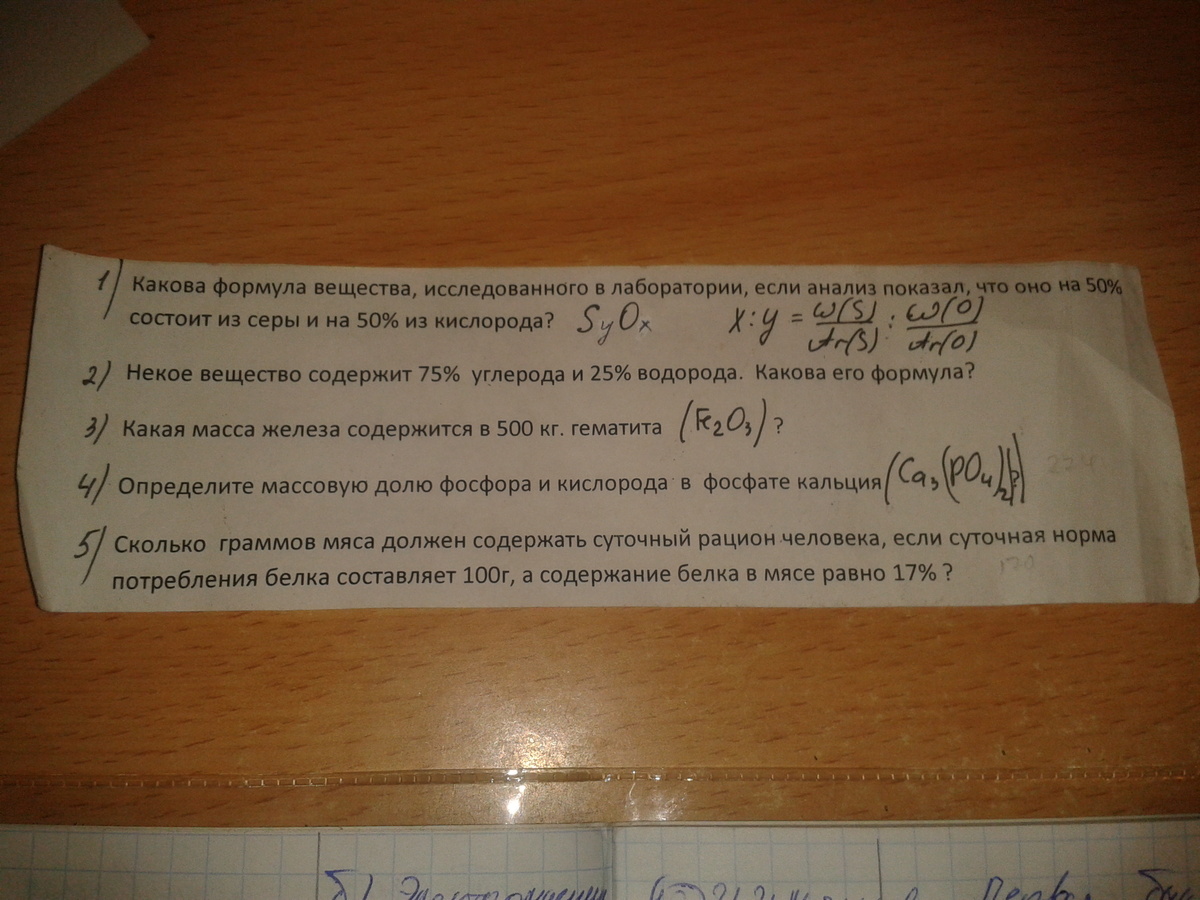 1) Какова формула вещества, исследованного в лаборатории, если анализ показал, что оно на 50%
состоит из серы и на 50% из кислорода? SyOx x:y = ω(S)/Ar(S) : ω(O)/Ar(O)
2) Некое вещество содержит 75% углерода и 25% водорода. Какова его формула?
3) Какая масса железа содержится в 500 кг. гематита (Fe2O3) ?
4) Определите массовую долю фосфора и кислорода в фосфате кальция (Ca3(PO4)2)?
5) Сколько граммов мяса должен содержать суточный рацион человека, если суточная норма
потребления белка составляет 100г, а содержание белка в мясе равно 17% ?
б)